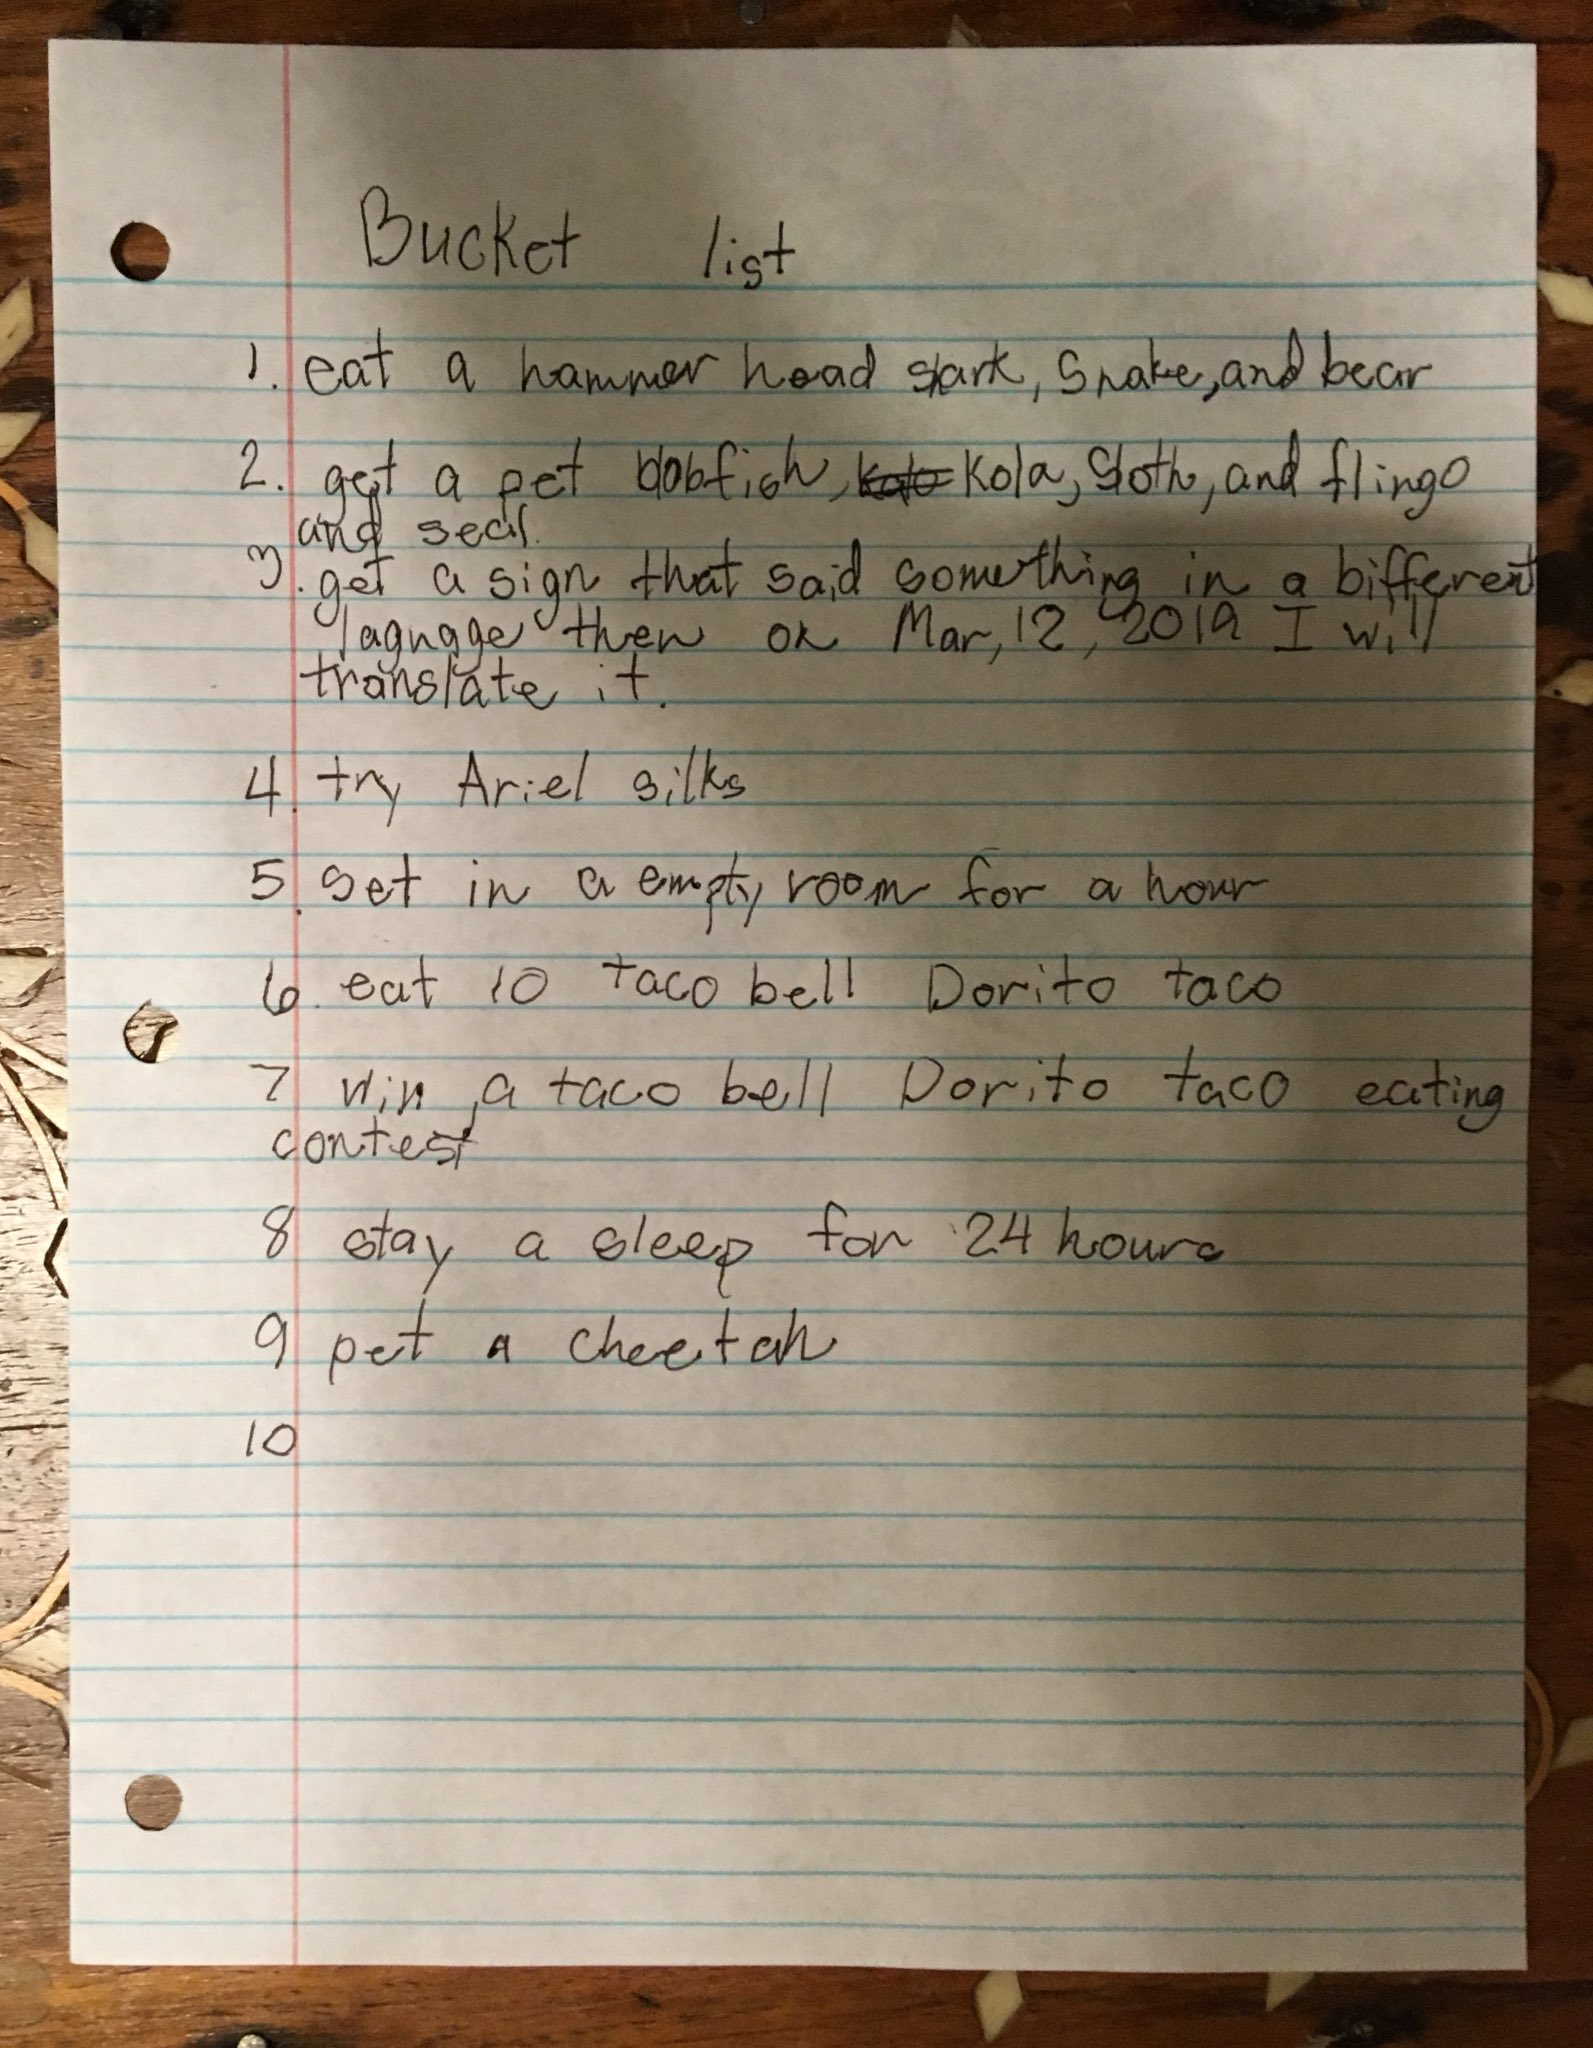 Bucket list
1. eat a hammer head shark, Snake, and bear
2. get a pet blobfish, Kola, Sloth, and flingo
and seal.
3. get a sign that said something in a bifferent
lagnage then on Mar, 12, 2019 I will
translate it.
4. try Ariel silks
5. set in a empty room for a hour
6. eat 10 taco bell Dorito taco
7 win a taco bell Dorito taco eating
contest
8 stay a sleep for 24 hours
9 pet a cheetah
10